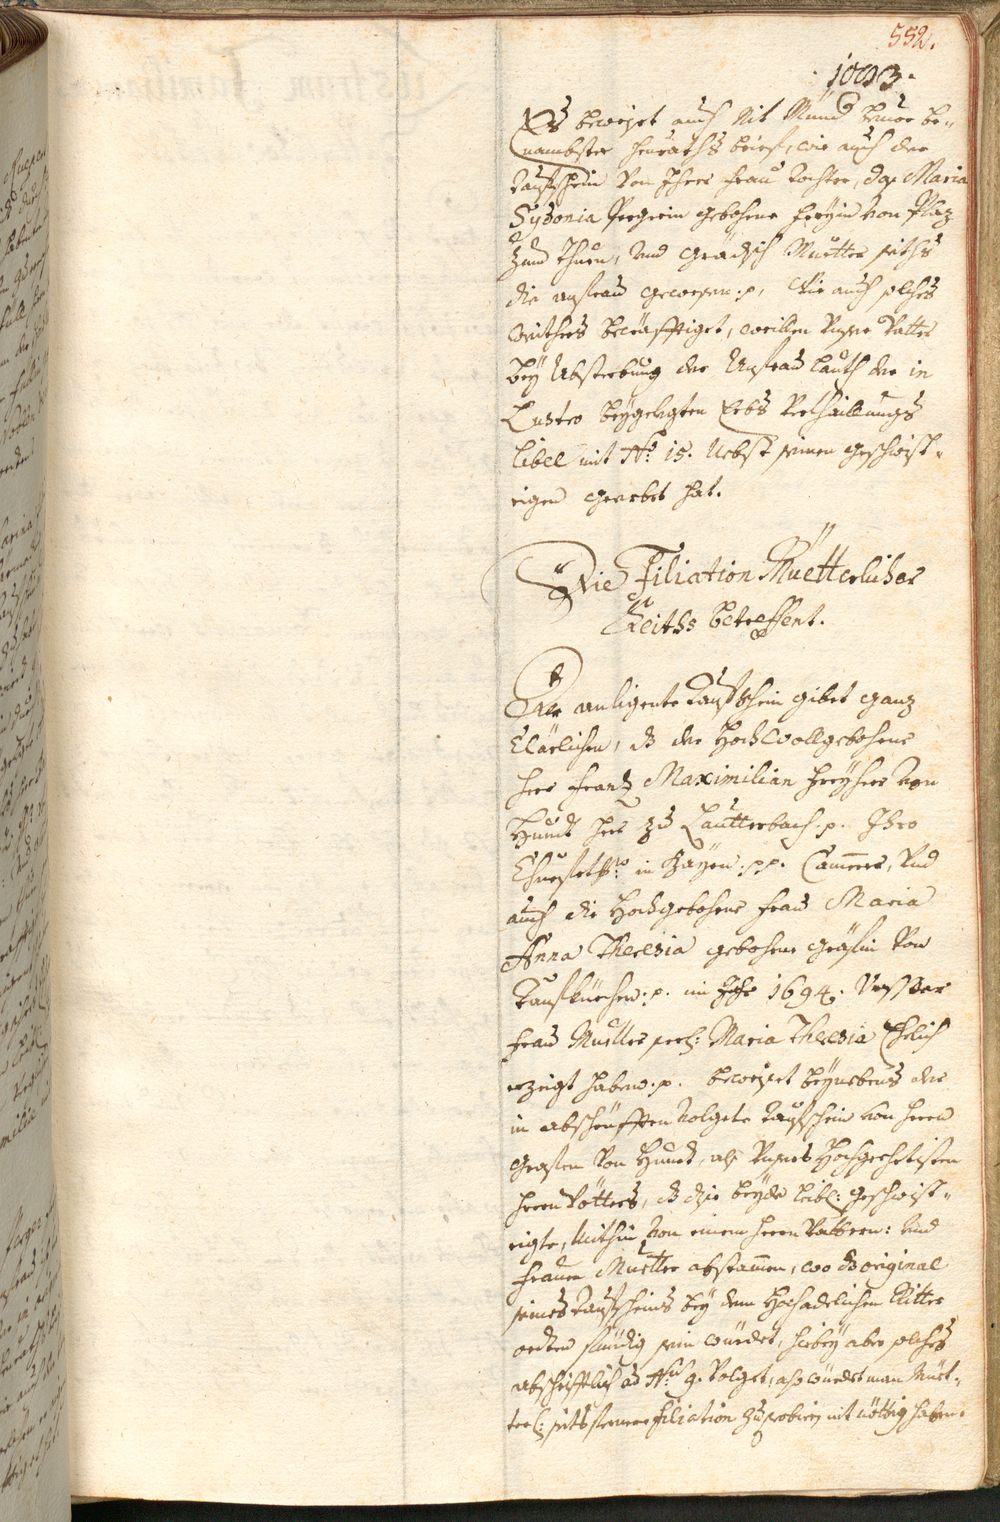 552.
1093.
Es beweiset auch nit Mund hervor be-
nambster heuraths brieff, wie auch der
Tauffschein von Ihrer Frau Tochter, daß Maria
Sydonia gebohrne Freyin von Plaz
zum Thurn, und Mutter seiths
die Anfrau gewesen :p, wie auch solches
weithers becräfftiget, weillen Unser Vatter
bey Absterbung der Anfrau lauth der in
Lustro beygelegten Erbs Verthaillungs
libel mit No: 15. Nebst seinen geschwist-
rigen geerbet hat.
Die Filiation Muetterlicher
Seiths betreffent.
Der anligente Tauffschein gibet ganz
Clärlichen, dz der Hochwollgebohrne
Herr Frantz Maximilian Freyherr von
Hundt herr zu Lautterbach :p. Ihro
Churfrtl: in Bayrn :pp. Cammerer, und
auch die Hochgebohrne Frau Maria
Anna Theresia gebohrne Gräfin von
Taufkürchen :p. im Jahr 1694. Unssere
Frau Mutter seel: Maria Theresia Ehelich
erzeigt haben :p. beweiset beynebens der
in abschrüfften volgete Tauffschein von Herrn
Grafen von Hundt, als Unsers Hochgeehrtisten
Herrn Vötters, dz Sie beyde leibl: geschwist-
rigte, mithin von einem Herrn Vattern: und
Frauen Muetter abstammen, wo dz original
seines Tauffscheins bey dem Hochadelichen Ritter
orden fündig sein würdet, hiebey aber solches
abschrifftlich sub No 9. volget, also würdet man Müet-
terl: seits fernere Filiation zuprobirn nit nöttig haben.